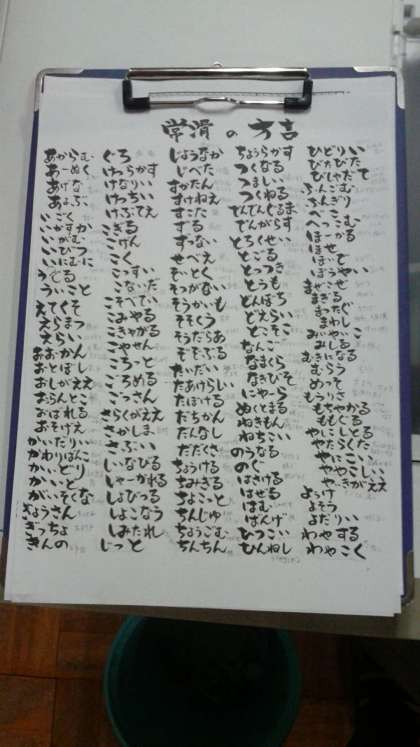 常滑の方言
あからむ
あーぬく
あげな
あよぶ
いごく
いがすか
いがむ
いびつ
いにむに
うでる
ういこと
えてくそ
えらまつ
えらい
おおかん
おとぼし
おしがええ
おらんとこ
おはれる
おそげえ
かいだりい
かわりばんこ
かいどり
かいと
がいそくな
ぎょうさん
ぎっちょ
きんの
ぐろ
けわらかす
けなりい
けっちい
けぶてえ
こぎる
こけん
こく
こっすい
こないだ
こそべてい
こみやる
こきゃがる
こやせん
ころっと
ころめる
ごっさん
さらくがええ
さかしま
さぶい
しいなびる
しゃーかれる
しょびつる
しょこなう
しみたれ
じっと
じょうなか
じべた
すかたん
すけねえ
すこた
ずる
ずつない
せべえ
ぞいとく
そつがない
そうかいも
そそくう
そうだらあ
そぞぶる
だいだい
たあけらしい
たばける
だちかん
たんなし
だだくさ
ちょうける
ちみぎる
ちょこっと
ちんじゅ
ちょうごむ
ちんちん
ちょうらかす
つくなる
つましい
つくねる
でんでんぐるま
でんがらす
とろくせい
とごる
とっつき
とうも
どんばち
どえらい
とこそこ
なんこ
なまくら
なきびそ
にゃーら
ぬくとまる
ねきもん
ねちこい
のうなる
のぐ
はさける
はぜる
はむ
ばんげ
ひつこい
ひんねし
ひどりい
びたびた
びしゃたて
ふんごむ
ふんぎり
べこ
へっこむ
ほーかる
ほせ
ほいで
ぼうやい
まぜこぜ
まぎる
まったぐ
まわし
みいやい
みしる
むきになる
むらう
めって
もうりさ
もちゃかる
ももくる
やにしとる
やたらくた
やにこい
ややこしい
やーきがええ
ようけ
よそう
よだりい
わやする
わやこく